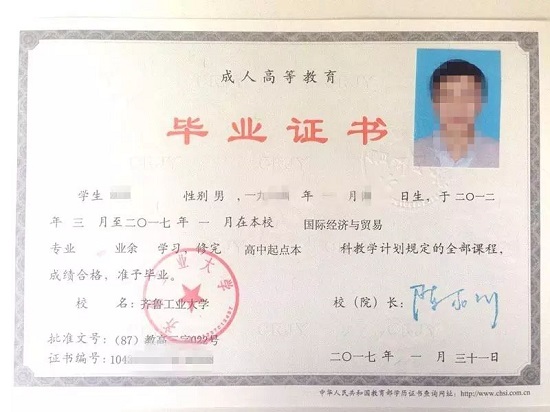 成人高等教育
毕业证书
学生 性别 男，一九 年 一 月 日生，于二〇一二
年 三 月至二〇一七年 一 月在本校 国际经济与贸易
专业 业余 学习，修完 高中起点本 科教学计划规定的全部课程，
成绩合格，准予毕业。
校 名：齐鲁工业大学 校（院）长：
批准文号：(87) 教高三字022号
证书编号：104
二〇一七年 一 月 三十一日
中华人民共和国教育部学历证书查询网址：http://www.chsi.com.cn